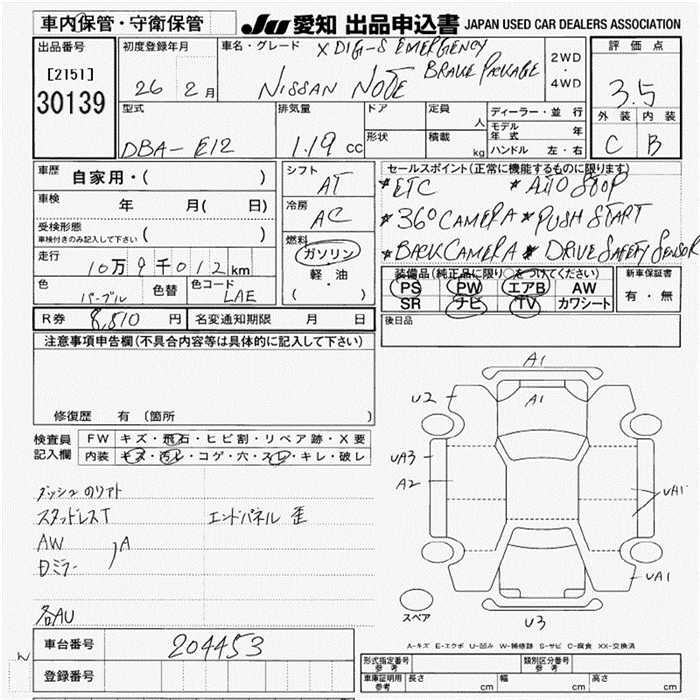 車内保管・守衛保管
JU 愛知 出品申込書 JAPAN USED CAR DEALERS ASSOCIATION
出品番号
[2151]
30139
初度登録年月
26 2月
車名・グレード X DIG-S EMERGENCY
NISSAN NOTE BRAKE PACKAGE
2WD
・
4WD
評価点
3.5
外装 内装
C B
型式
DBA-E12
排気量
1.19 cc
ドア
形状
定員 人
積載 kg
ディーラー・並行
モデル年式 年
ハンドル 左・右
車歴
自家用・( )
車検 年 月( 日)
受検形態
車検付きのみ記入して下さい ( )
走行
10万9千012km
色 パープル 色替 色コード LAE
シフト
AT
冷房
AC
燃料
ガソリン
軽・油
( )
セールスポイント(正常に機能するものに限ります)
*ETC *AUTO STOP
*360CAMERA *PUSH START
*BACKCAMERA *DRIVE SAFETY SENSOR
装備品(純正品に限り○をつけてください)
PS PW エアB AW
SR ナビ TV カワシート
新車保証書
有・無
R券 8,810 円 名変通知期限 月 日
後日品
注意事項申告欄(不具合内容等は具体的に記入して下さい)
修復歴 有 〔箇所 〕
検査員
記入欄
FW キズ・飛石・ヒビ割・リペア跡・X要
内装 キズ・汚レ・コゲ・穴・スレ・キレ・破レ
スタッドレスT エンドパネル 歪
AW
A
各AU
A1
A1
U2
UA3
A2
UA1
UA1
U3
スペア
A-キズ E-エクボ U-凹み W-補修跡 S-サビ C-腐食 XX-交換済
車台番号 204453
登録番号
型式指定番号
参考
類別区分番号
参考
車庫証明
参考
長さ cm 幅 cm 高さ cm